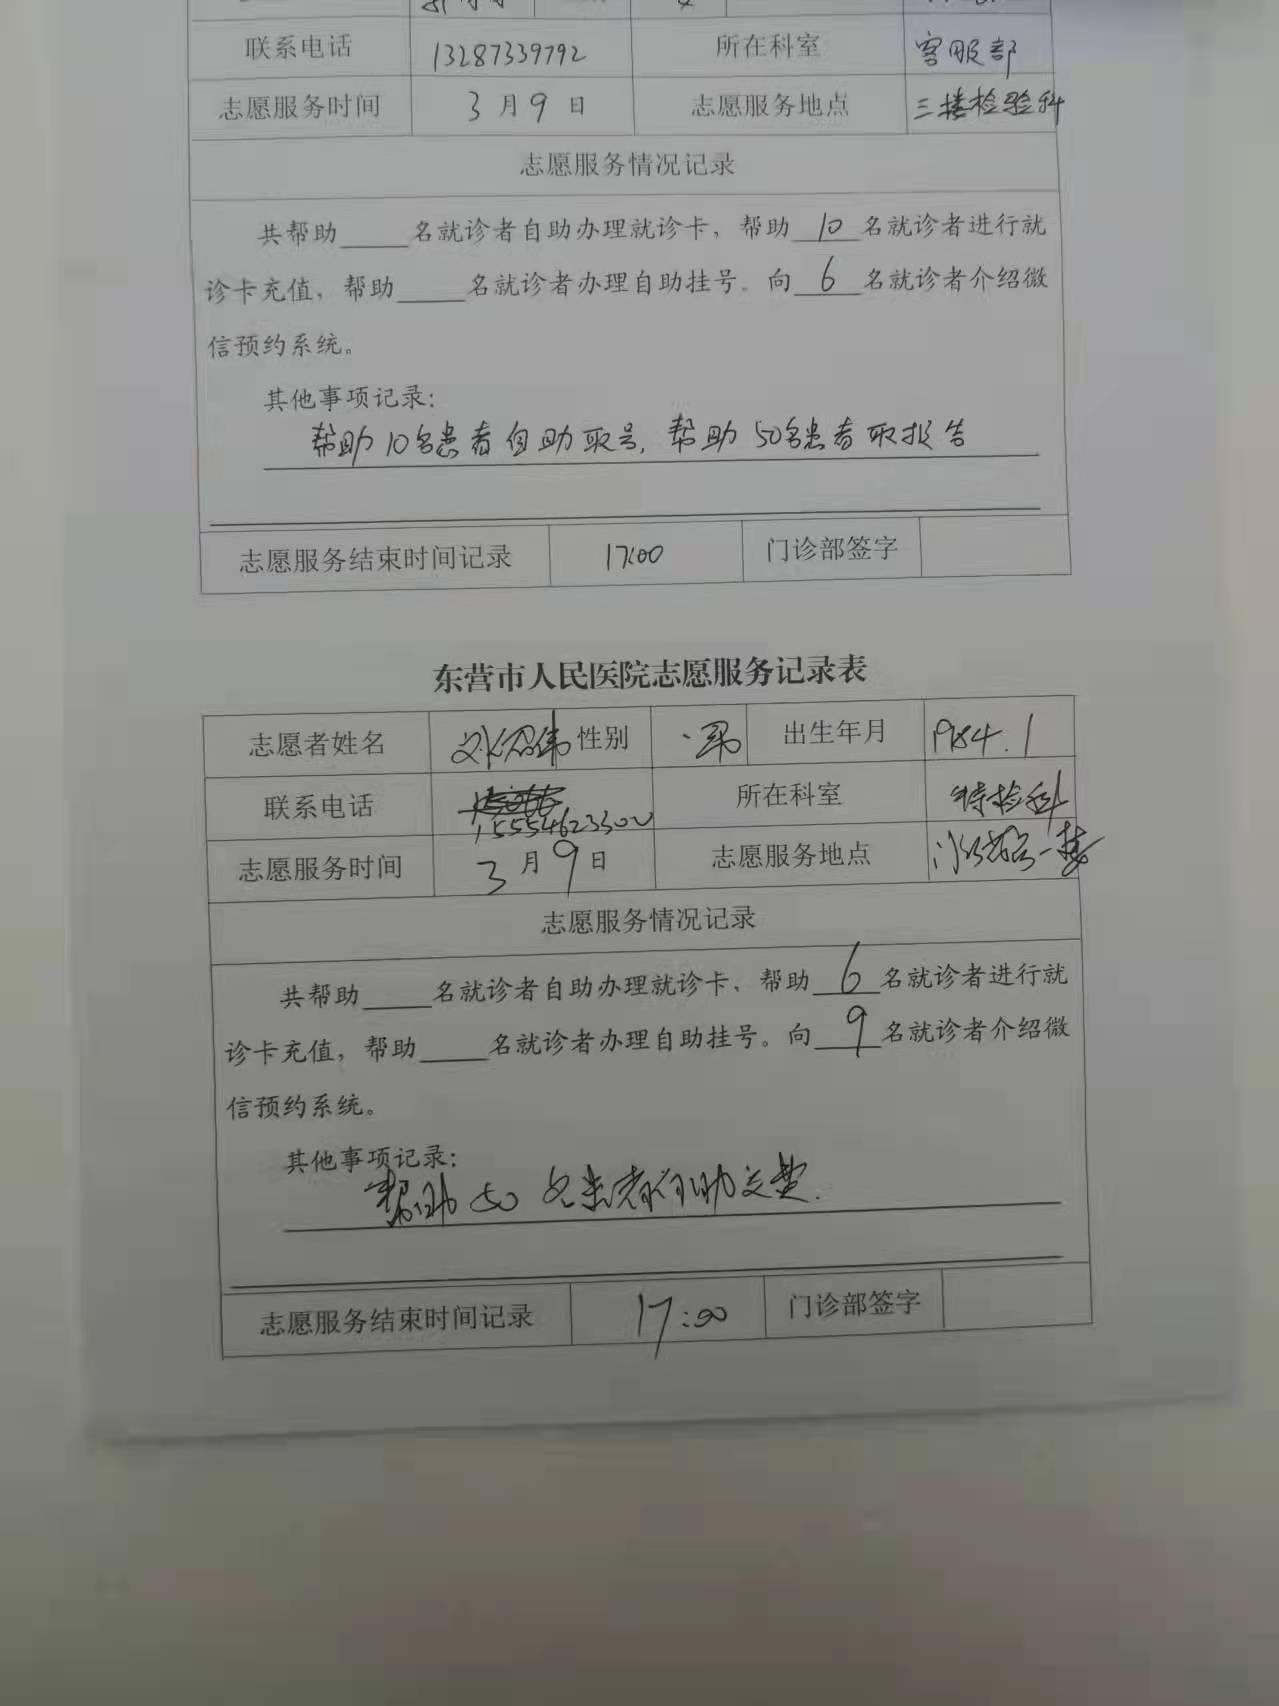 联系电话 13287339792 所在科室 客服部
志愿服务时间 3月9日 志愿服务地点 三楼检验科
志愿服务情况记录
共帮助____名就诊者自助办理就诊卡，帮助10名就诊者进行就
诊卡充值，帮助____名就诊者办理自助挂号。向6名就诊者介绍微
信预约系统。
其他事项记录：
帮助10名患者自助取号，帮助50名患者取报告
志愿服务结束时间记录 17:00 门诊部签字
东营市人民医院志愿服务记录表
志愿者姓名 性别 男 出生年月 1984.1
联系电话 15554623300 所在科室 特检科
志愿服务时间 3月9日 志愿服务地点 一楼
志愿服务情况记录
共帮助____名就诊者自助办理就诊卡，帮助6名就诊者进行就
诊卡充值，帮助____名就诊者办理自助挂号。向9名就诊者介绍微
信预约系统。
其他事项记录：
帮助50名患者自助交费.
志愿服务结束时间记录 17:00 门诊部签字